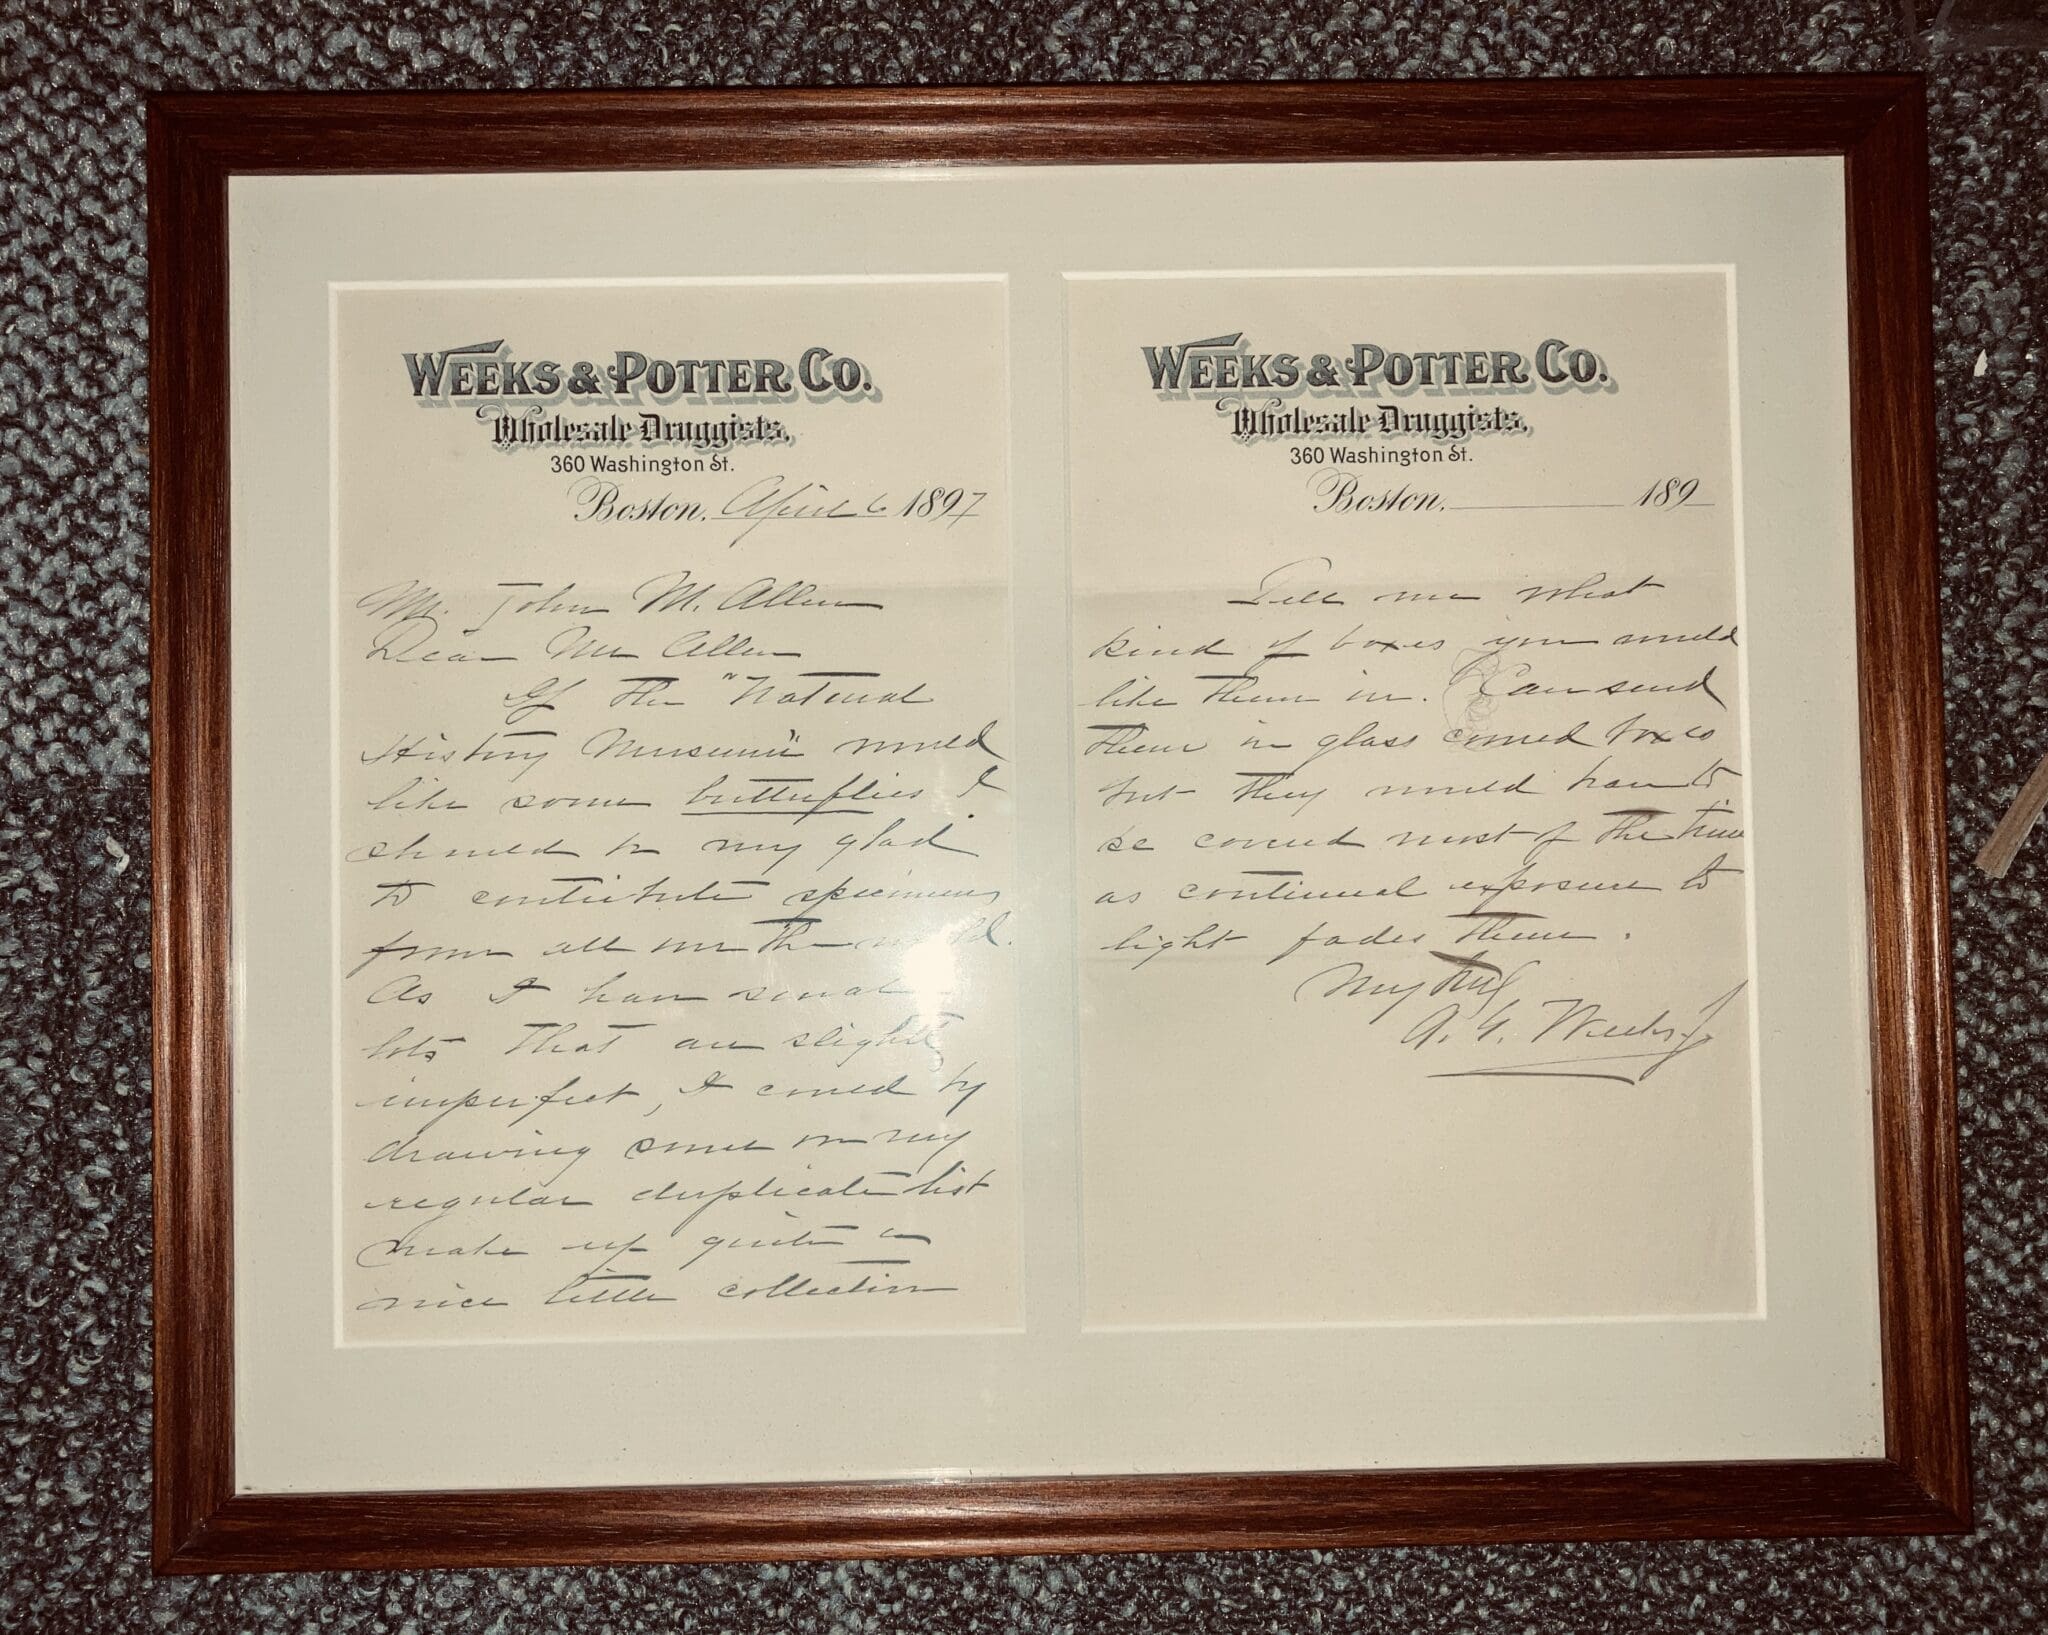 WEEKS & POTTER CO.
Wholesale Druggists,
360 Washington St.
Boston, April 6 1897
Mr. John M. Allen
Dear Mr Allen
If the "Natural
History Museum" would
like some butterflies I
should be very glad
to contribute specimens
from all over the world.
As I have several
lots that are slightly
imperfect, I could by
drawing some on my
regular duplicate list
make up quite a
nice little collection
WEEKS & POTTER CO.
Wholesale Druggists,
360 Washington St.
Boston, 189
Tell me what
kind of boxes you would
like them in. Can send
them in glass covered boxes
but they would have to
be covered most of the time
as continual exposure to
light fades them.
Very truly
A. G. Weeks Jr